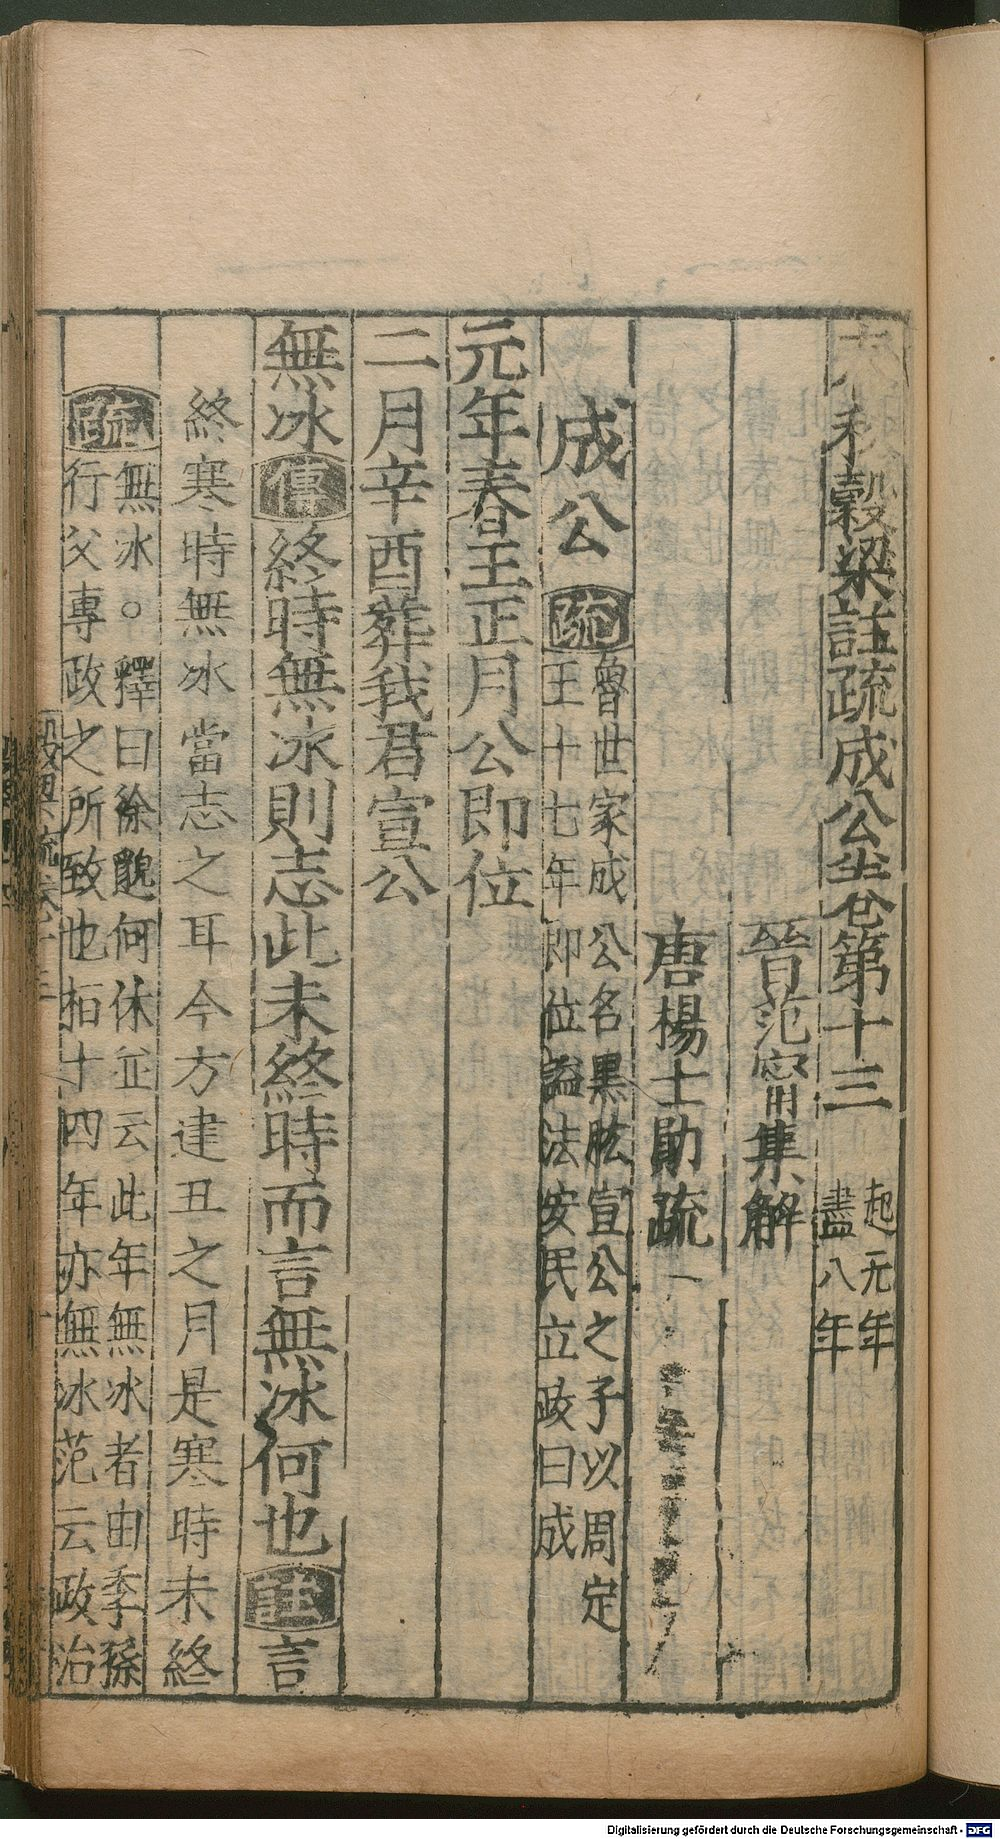 春秋穀梁註疏成公卷第十三 起元年
盡八年
晉范甯集解
唐楊士勛疏
成公 疏 魯世家成公名黑肱宣公之子以周定
王十七年即位謚法安民立政曰成
元年春王正月公即位
二月辛酉葬我君宣公
無冰傳終時無冰則志此未終時而言無冰何也註言
終寒時無冰當志之耳今方建丑之月是寒時未終
疏 無冰○釋曰徐邈何休並云此年無冰者由季孫
行父專政之所致也栢十四年亦無冰范云政治
穀梁疏卷十三
Digitalisierung gefördert durch die Deutsche Forschungsgemeinschaft - DFG